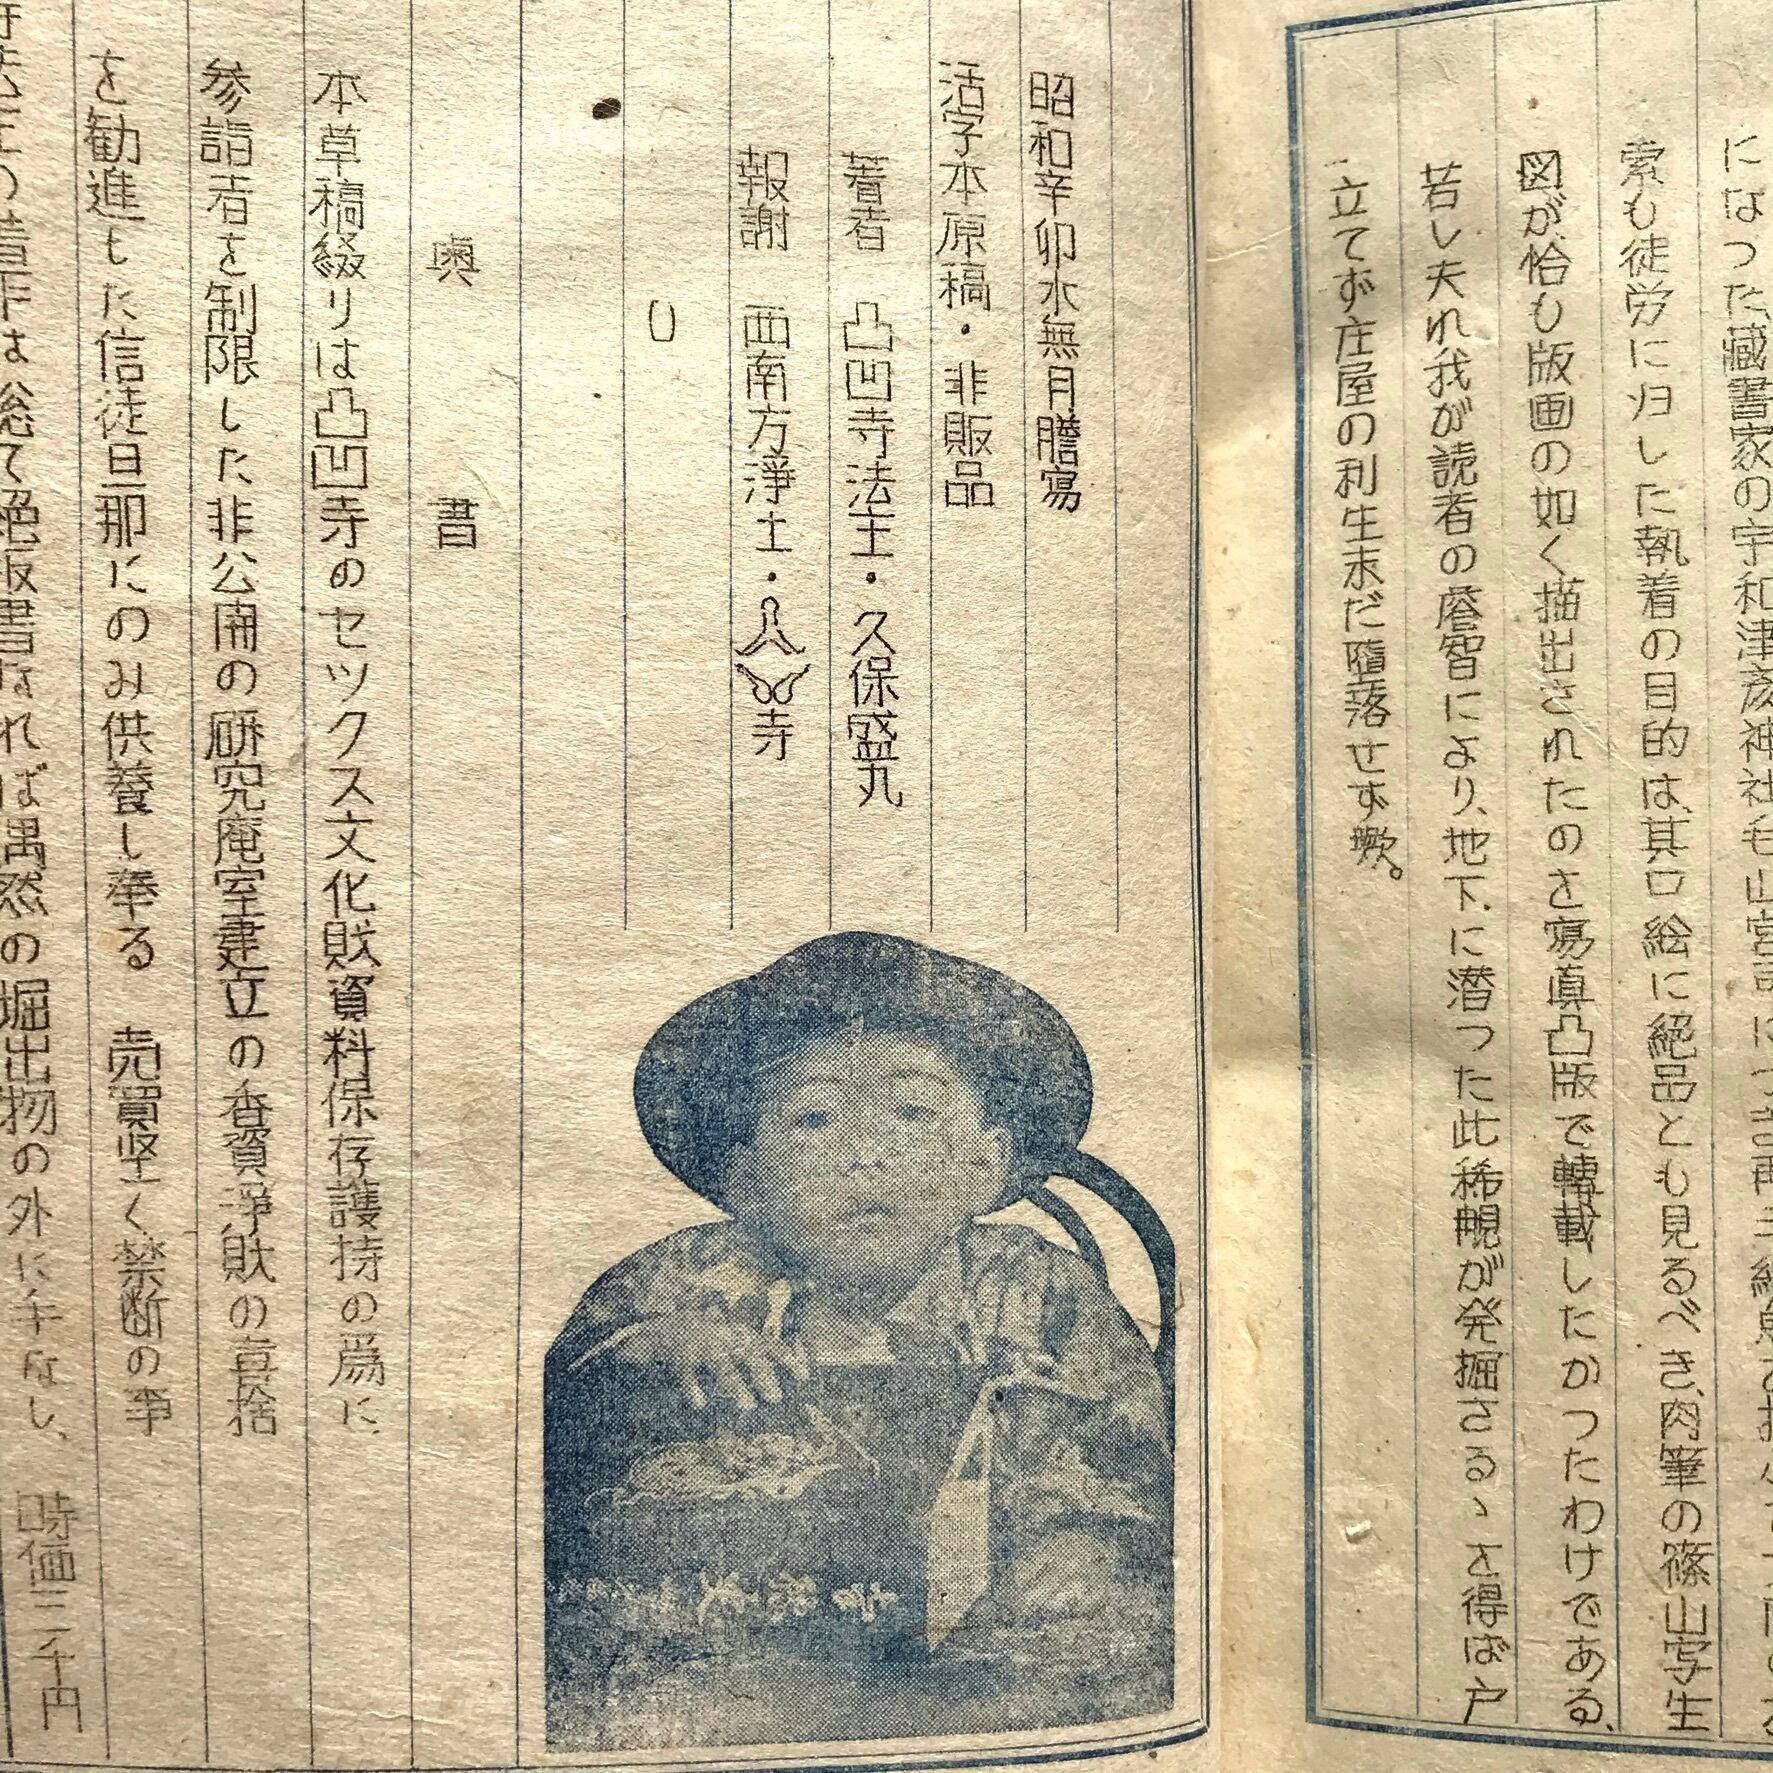 になった蔵書家の宇和津彦神社毛山宮司に
索も徒労に归した執着の目的は、其口絵に絶品とも見るべき、肉筆の篠山写生
図が、恰も版画の如く描出されたのを寫眞凸版で轉載したかつたわけである、
若し夫れ我が読者の
により、地下に潜つた此稀覯が発掘さるゝを得ば戸
立てず庄屋の利生末だ墮落せず歟。
昭和辛卯水無月謄寫
活字本原稿・非販品
著者 凸凹寺法主・久保盛丸
報謝 西南方浄土・寺
奥書
本草稿綴りは凸凹寺のセツクス文化財資料保存護持の為に
参詣者を制限した非公開の研究庵室建立の香資浄財の喜捨
を勧進した信徒旦那にのみ供養し奉る 売買堅く禁断の事
の著作は総て絶版書なれば偶然の堀出物の外に手なし、時価三千円